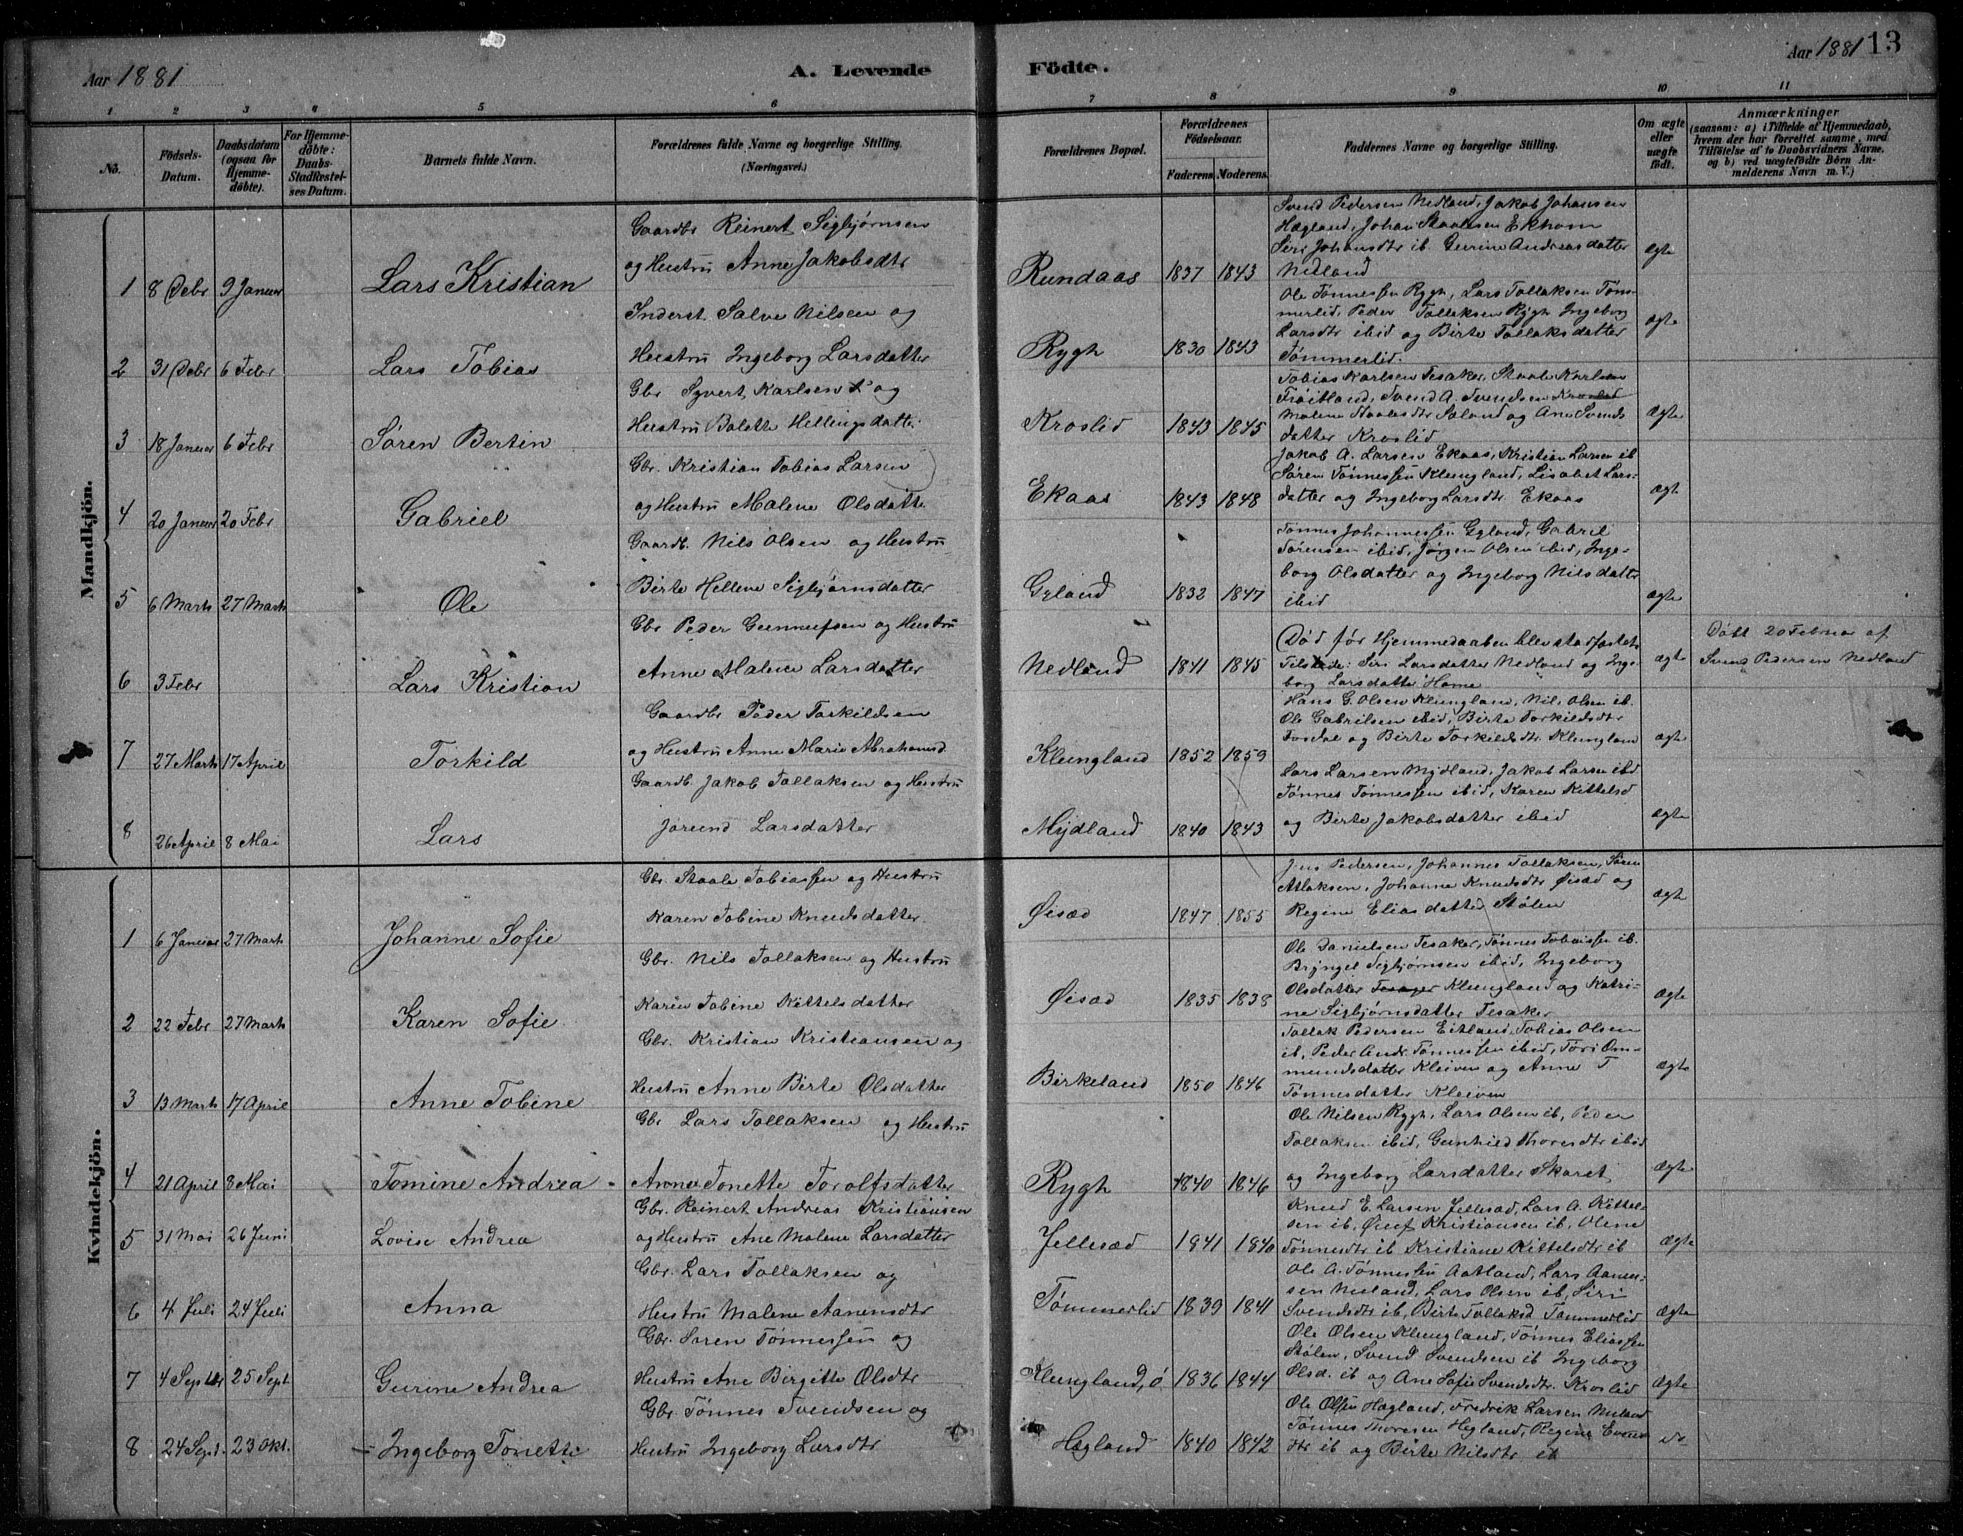 Aar 1881
A. Levende
Födte.
Aar 1881 13
1 2 3 4 5 6 7 8 9 10 11
No.
Födsels-Datum.
Daabsdatum (ogsaa for Hjemmedöbte).
For Hjemmedöbte: Daabs-Stadfæstelses Datum.
Barnets fulde Navn.
Forældrenes fulde Navne og borgerlige Stilling. (Næringsvei.)
Forældrenes Bopæl.
Forældrenes Födselsaar.
Faderens. Moderens.
Faddernes Navne og borgerlige Stilling.
Om ægte eller uægte födt.
Anmærkninger (saasom: a) i Tilfælde af Hjemmedaab, hvem der har forrettet samme, med Tilföielse af to Daabsvidners Navne, og b) ved uægtefödte Börn Anmelderens Navn m. V.)
Mandkjön.
1 8 Debr 9 Januar Lars Kristian
Gaardbr Reinert Sigbjørnsen
og Hustru Anne Jakobsdtr
Rundaas 1837 1843
Svend Pedersen Nedland, Jakob Johansen
Hægland, Johan Staalesen Ekhom
Seri Johansdtr ib. Gurine Andreasdatter
Nedland
ægte
2 31 Debr 6 Febr Lars Tobias
Inderst. Salve Nilsen og
Hustru Ingeborg Larsdatter
Rygh 1830 1843
Ole Tønnessen Rygh, Lars Tollaksen Tøm-
merlid, Peder Tollaksen Rygh Ingeborg
Larsdtr ibid og Birte Tollaksdatter
Tømmerlid.
ægte
3 18 Januar 6 Febr Søren Bertin
Gbr Syvert Karlsen og
Hustru Bolette Hellingsdatter
Kroslid 1843 1845
Tobias Karlsen Tesaker, Staale Karlsen
Frøitland, Svend A. Svendsen Kroslid
Malene Staalesdtr Saland og Ane Svends
datter Kroslid
ægte
4 20 Januar 20 Febr Gabriel
Gbr. Kristian Tobias Larsen
og Hustru Malene Olsdatte
Ekaas 1843 1848
Jakob A. Larsen Ekaas, Kristian Larsen ib
Søren Tønnessen Klungland, Lisabet Lars-
datter og Ingeborg Larsdtr Ekaas
ægt
5 6 Marts 27 Marts Ole
Gaardb. Nils Olsen og Hustru
Birte Hellene Sigbjørnsdatter
Gyland 1832 1847
Tønnes Johannessen Gyland, Gabril
Sørensen ibid, Jørgen Olsen ibid, Inge-
borg Olsdatter og Ingeborg Nilsdattr
ibid
ægte
6 3 Febr Lars Kristian
Gbr Peder Gunnufsen og Hustru
Anne Malene Larsdatter
Nedland 1841 1845
Død før Hjemmedaaben blev stadfæstet
Tilstede: Siri Larsdatter Nedland og Inge
borg Larsdatter Home
ægte
Døbt 20 Februar af
Svend Pedersen Nedland
7 27 Marts 17 April Torkild
Gaardbr Peder Torkildsen
og Hustru Anne Marie Abrahamsd
Klungland 1852 1859
Hans G. Olsen Klungland, Nils Olsen ib.
Ole Gabrielsen ibid, Birte Torkildsdtr
Tosdal og Birte Torkildsdtr Klungland
ægte
8 26 April 8 Mai Lars
Gaardb. Jakob Tollaksen og Hustru
Jorund Larsdatter
Mydland 1840 1843
Lars Larsen Mydland, Jakob Larsen ibd
Tønnes Tønnessen ibid, Karen Kittelsd
og Birte Jakobsdatter ibid
ægte
Kvindekjön.
1 6 Januar 27 Marts Johanne Sofie
Gbr. Staale Tobiassen og Hustru
Karen Tobine Knudsdatter
Øisæd 1847 1855
Jens Pedersen, Johannes Tollaksen, Søren
Atlaksen, Johanne Knudsdtr Øisæd og
Regine Eliasdatter Stølen
ægte
2 22 Febr 27 Marts Karen Sofie
Gbr. Nils Tollaksen og Hustru
Karen Tobine Kittelsdatter
Øisæd 1835 1838
Ole Danielsen Tesaker, Tønnes Tobiassen ib.
Bryngel Sigbjørnsen ibid, Ingeborg
Olsdatter Klungland og Katri-
ne Sigbjørnsdatter Tesaker
ægte
3 13 Marts 17 April Anne Tobine
Gbr. Kristian Kristiansen og
Hustru Anne Birte Olsdatter
Birkeland 1850 1846
Tollak Pedersen Eitland, Tobias Olsen
ib, Peder Andr. Tønnessen ibid, Tori Om-
mundsdatter Kleiven og Anne T
Tønnesdatter Kleiven
ægte
4 21 April 8 Mai Tomine Andrea
Gbr Lars Tollaksen og Hustru
Anne Tonette Torolfsdatter
Rygh 1840 1846
Ole Nilsen Rygh, Lars Olsen ib, Peder
Tollaksen ibid, Gunhild Thoresdtr ibid
og Ingeborg Larsdatter Skaret
ægte
5 31 Mai 26 Juni Lovise Andrea
Gbr. Reinert Andreas Kristiansen
og Hustru Ane Malene Larsdatter
Jellesæd 1841 1840
Knud E. Larsen Jellesæd, Lars A. Kittel-
sen ib, Kristiansen ib, Olene
Tønnesdtr ib Kristiane Kittelsdtr ib
ægte
6 4 Juli 24 Juli Anna
Gbr. Lars Tollaksen og
Hustru Malene Aanensdtr
Tømmerlid 1839 1841
Ole A. Tønnessen Aatland, Lars Aanen-
sen Nuland, Lars Olsen ib, Siri
Svendsdtr ib, Birte Tollaksd Tømmerlid
ægte
7 4 Septbr 25 Sept Gurine Andrea
Gbr. Søren Tønnessen og
Hustru Ane Birgitte Olsdtr
Klungland, ø 1836 1844
Ole Olsen Klungland, Tønnes Eliassen
Stølen, Svend Svendsen ib Ingeborg
Olsd. ib og Ane Sofie Svendsdtr. Kroslid
ægte
8 24 Sept. 23 Okt. Ingeborg Tonette
Gbr. Tønnes Svendsen og
Hustru Ingeborg Larsdtr
Hægland 1840 1842
Ole Olsen Hægland, Fredrik Larsen Nuland
Tønnes Thoresen Hegland, Regine Evens
dtr ib og Birte Nilsdtr ib